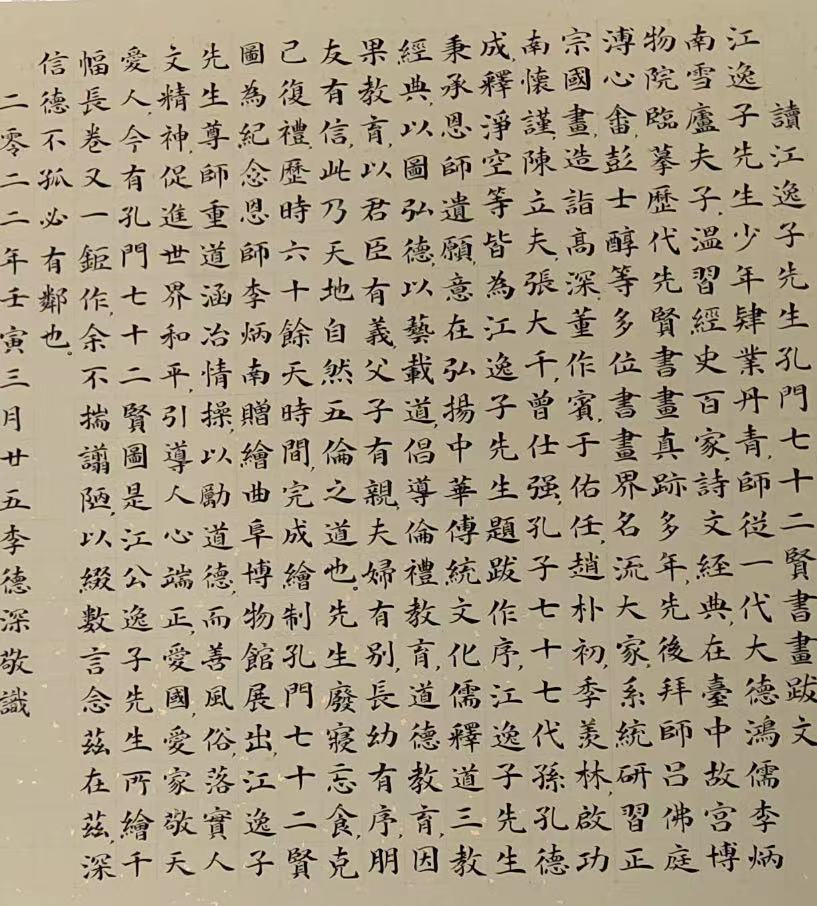 讀江逸子先生孔門七十二賢書畫跋文
江逸子先生少年肄業丹青,師從一代大德鴻儒李炳
南雪廬夫子,溫習經史百家,詩文經典,在臺中故宮博
物院臨摹歷代先賢書畫真跡多年,先後拜師呂佛庭
溥心畬,彭士醇等多位書畫界名流大家,系統研習正
宗國畫,造詣高深,董作賓,于佑任,趙朴初,季羨林,啟功
南懷謹,陳立夫,張大千,曾仕强,孔子七十七代孫孔德
成,釋淨空等皆為江逸子先生題跋作序,江逸子先生
秉承恩師遺願,意在弘揚中華傳統文化儒釋道三教
經典,以圖弘德,以藝載道,倡導倫禮教育,道德教育,因
果教育,以君臣有義,父子有親,夫婦有别,長幼有序,朋
友有信,此乃天地自然五倫之道也。先生廢寢忘食,克
己復禮,歷時六十餘天時間,完成繪制孔門七十二賢
圖為紀念恩師李炳南贈繪曲阜博物館展出,江逸子
先生尊師重道涵冶情操,以勵道德,而善風俗,落實人
文精神,促進世界和平,引導人心端正,愛國,愛家敬天
愛人,今有孔門七十二賢圖是江公逸子先生所繪千
幅長卷又一鉅作,余不揣譾陋,以綴數言念茲在茲,深
信德不孤必有鄰也。
二零二二年壬寅三月廿五李德深敬識